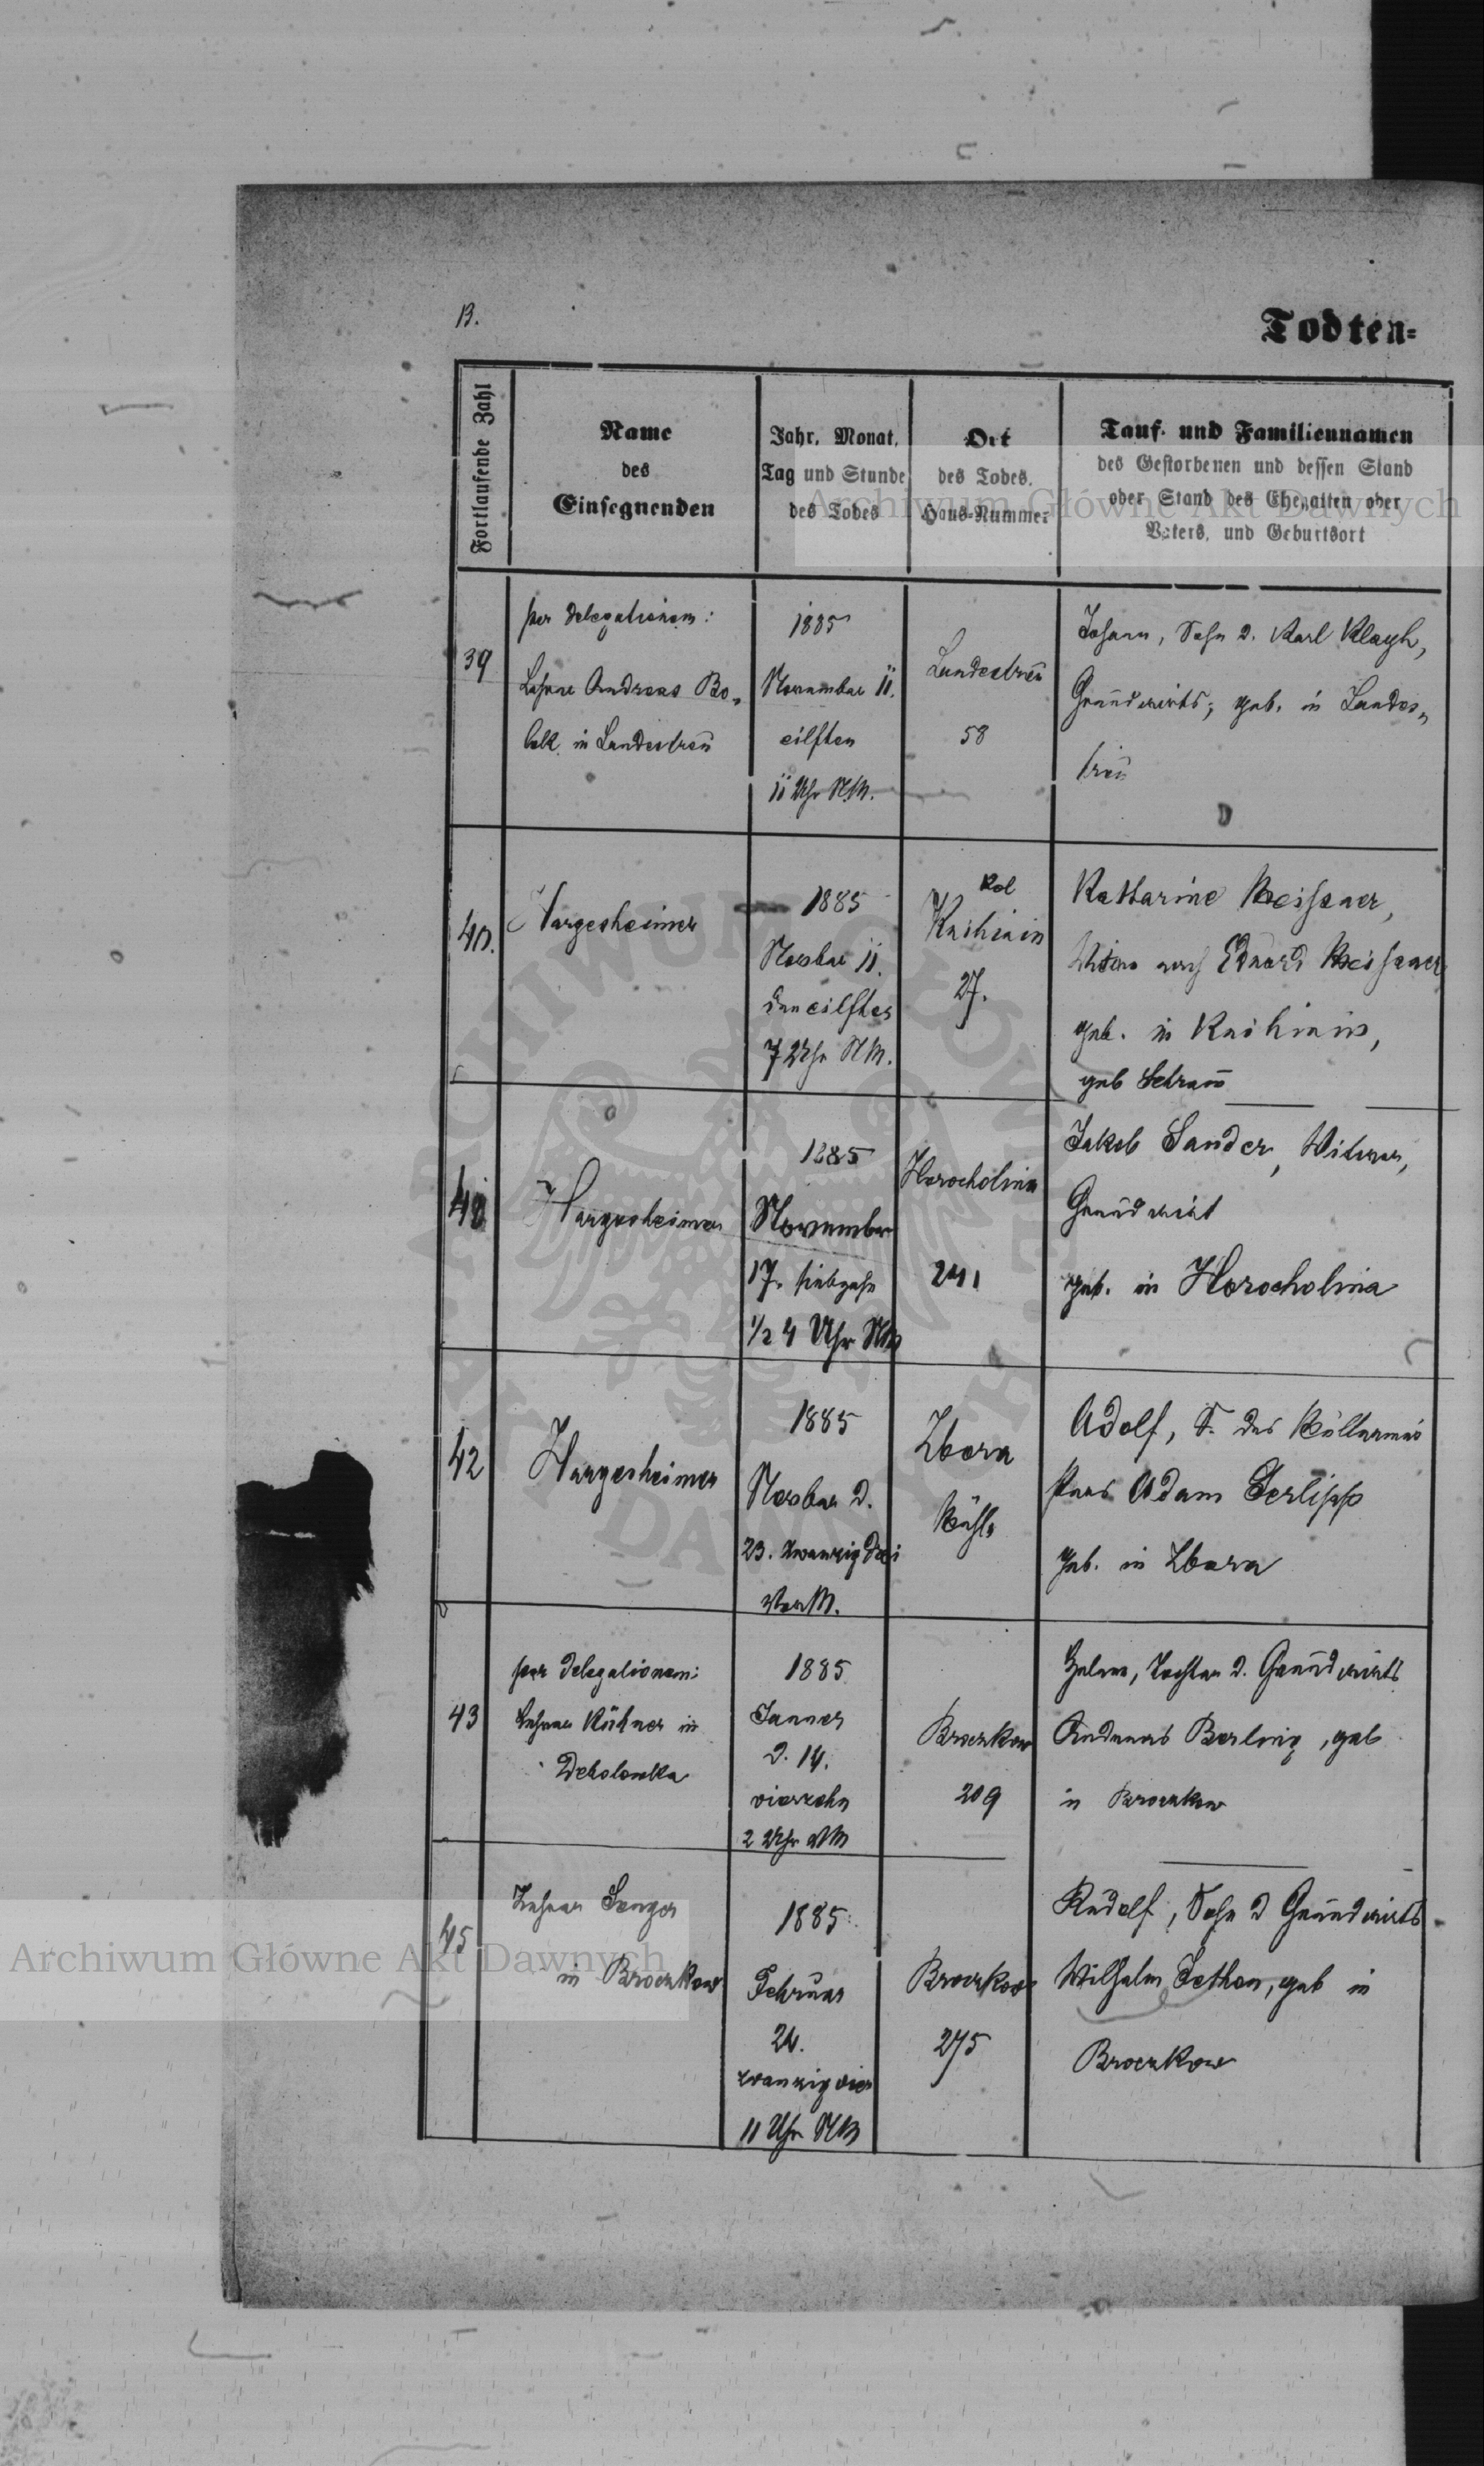 13.
Todten=
Fortlaufende Zahl
Name
des
Einsegnenden
Jahr, Monat,
Tag und Stunde
des Todes
Ort
des Todes,
Haus=Nummer
Tauf- und Familiennamen
des Gestorbenen und dessen Stand
oder Stand des Ehegatten oder
Vaters, und Geburtsort
Archiwum Główne Akt Dawnych
39
per delegationem:
Lehrer Andreas Bo-
lek in Landestreü
1885
November 11.
eilften
11 Uhr NM.
Landestreü
58
Johann, Sohn d. Karl
Grundwirts, geb. in Landes-
treü
40.
Hargesheimer
1885
Novber 11.
den eilften
7 Uhr NM.
Kol
27.
Katharine Meissner,
Witwe nach Eduard Meissner
geb. in
geb Schram
Hargesheimer
1885
November
17. siebzehn
1/2 4 Uhr NM
Horocholina
241
Jakob Sander, Witwer,
Grundwirt
geb. in Horocholina
42
Hargesheimer
1885
Novber d.
23. zwanzig drei
VorM.
Zbora
Mühle
Adolf, S. des Müllermei-
sters Adam Gerlipp
geb. in Zbora
43
per delegationem:
Lehrer in
1885
Janner
d. 14.
vierzehn
2 Uhr VM
Broczkow
209
Tochter d. Grundwirts
Andreas Berling, geb
in Broczkow
45
Lehrer Senger
in Broczkow
1885
Februar
24.
zwanzig vier
11 Uhr NM
Broczkow
275
Rudolf, Sohn d Grundwirts
Wilhelm Jethon, geb in
Broczkow
Archiwum Główne Akt Dawnych